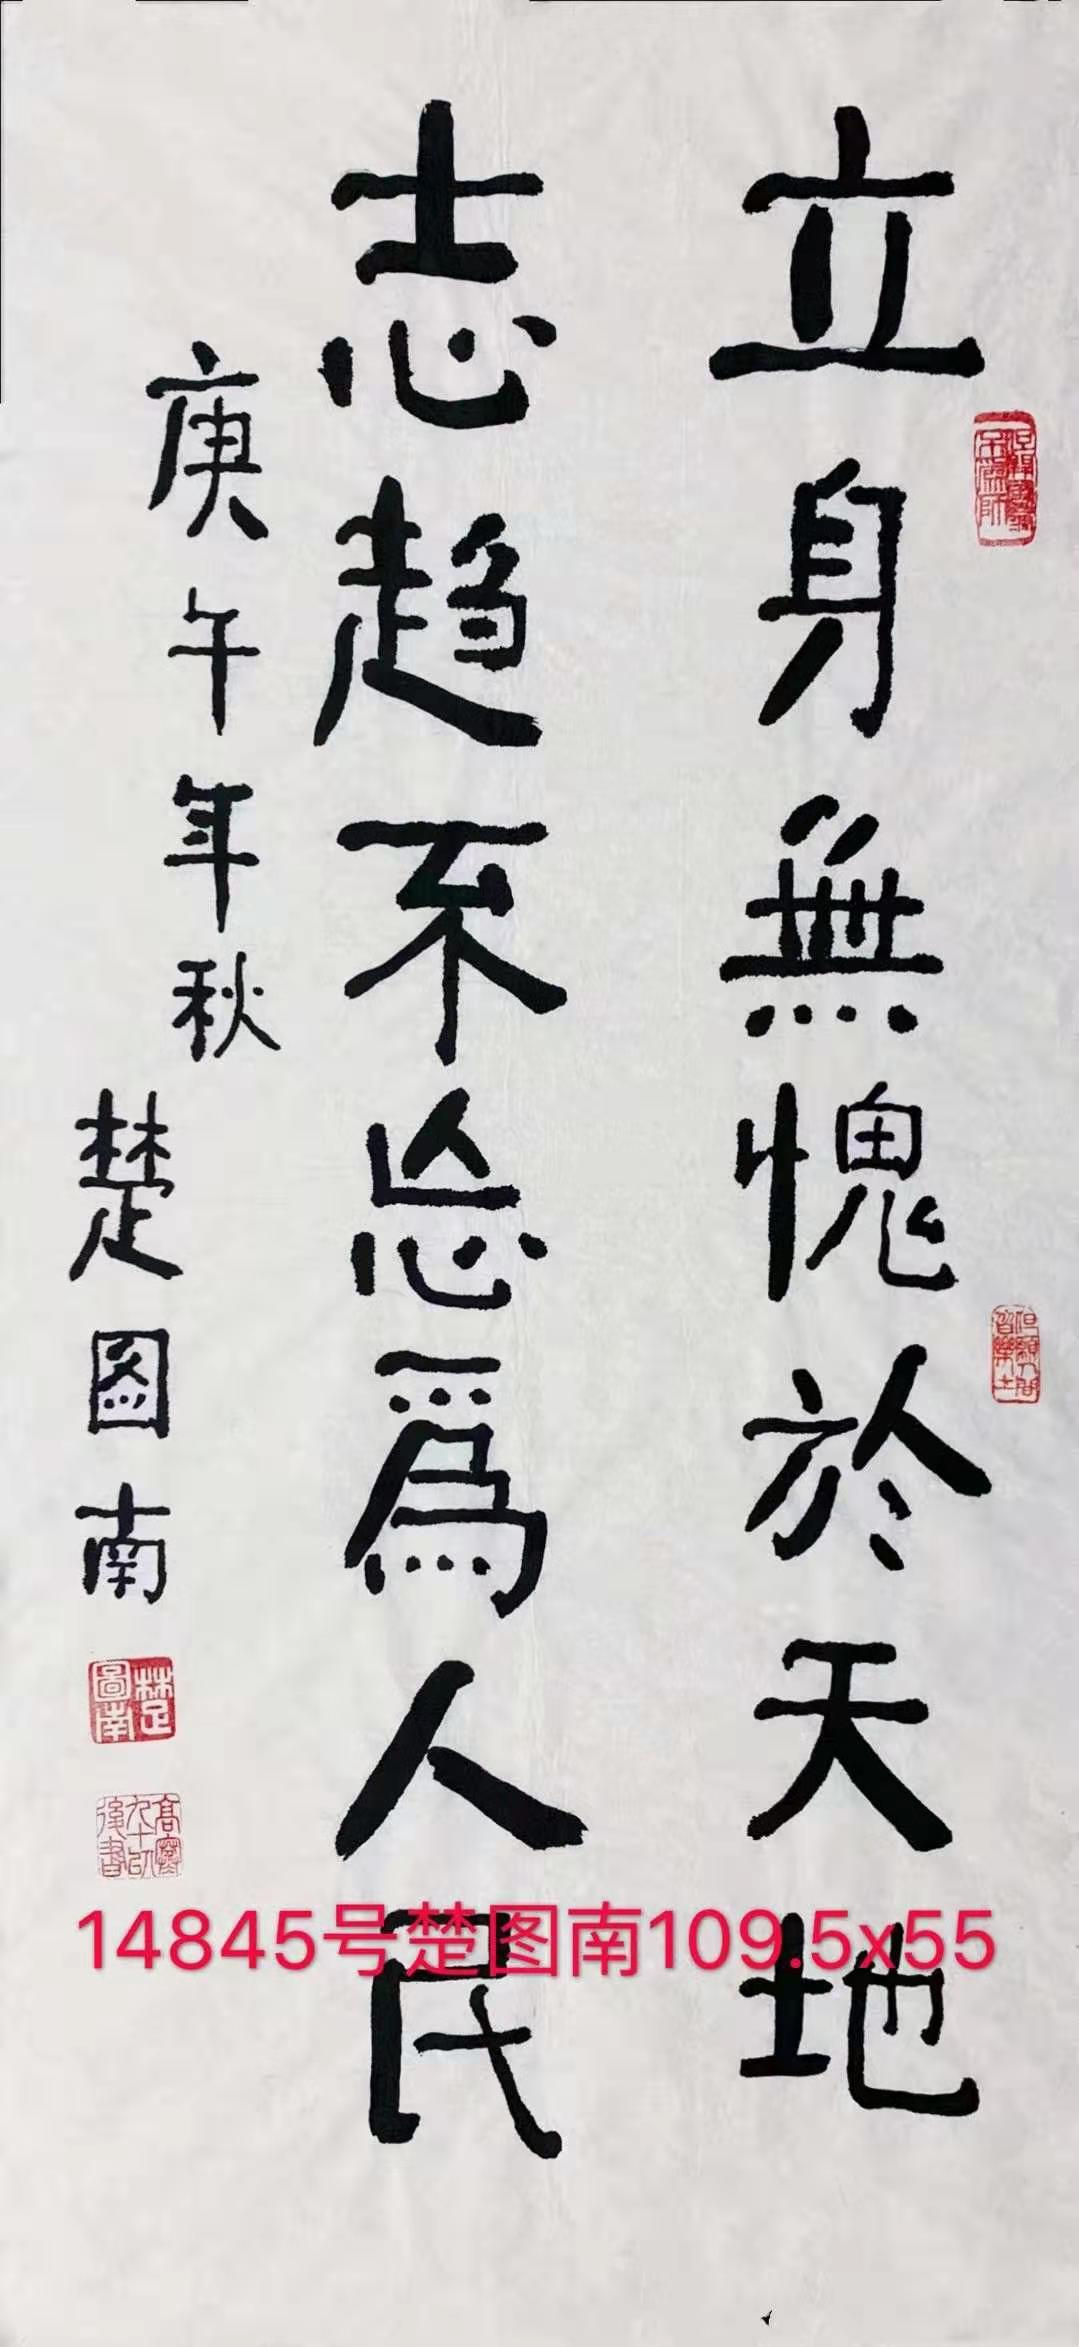 立身無愧於天地
志趋不忘爲人民
庚午年秋
楚图南
楚圖南
高寒九十以後書
14845号楚图南109.5x55